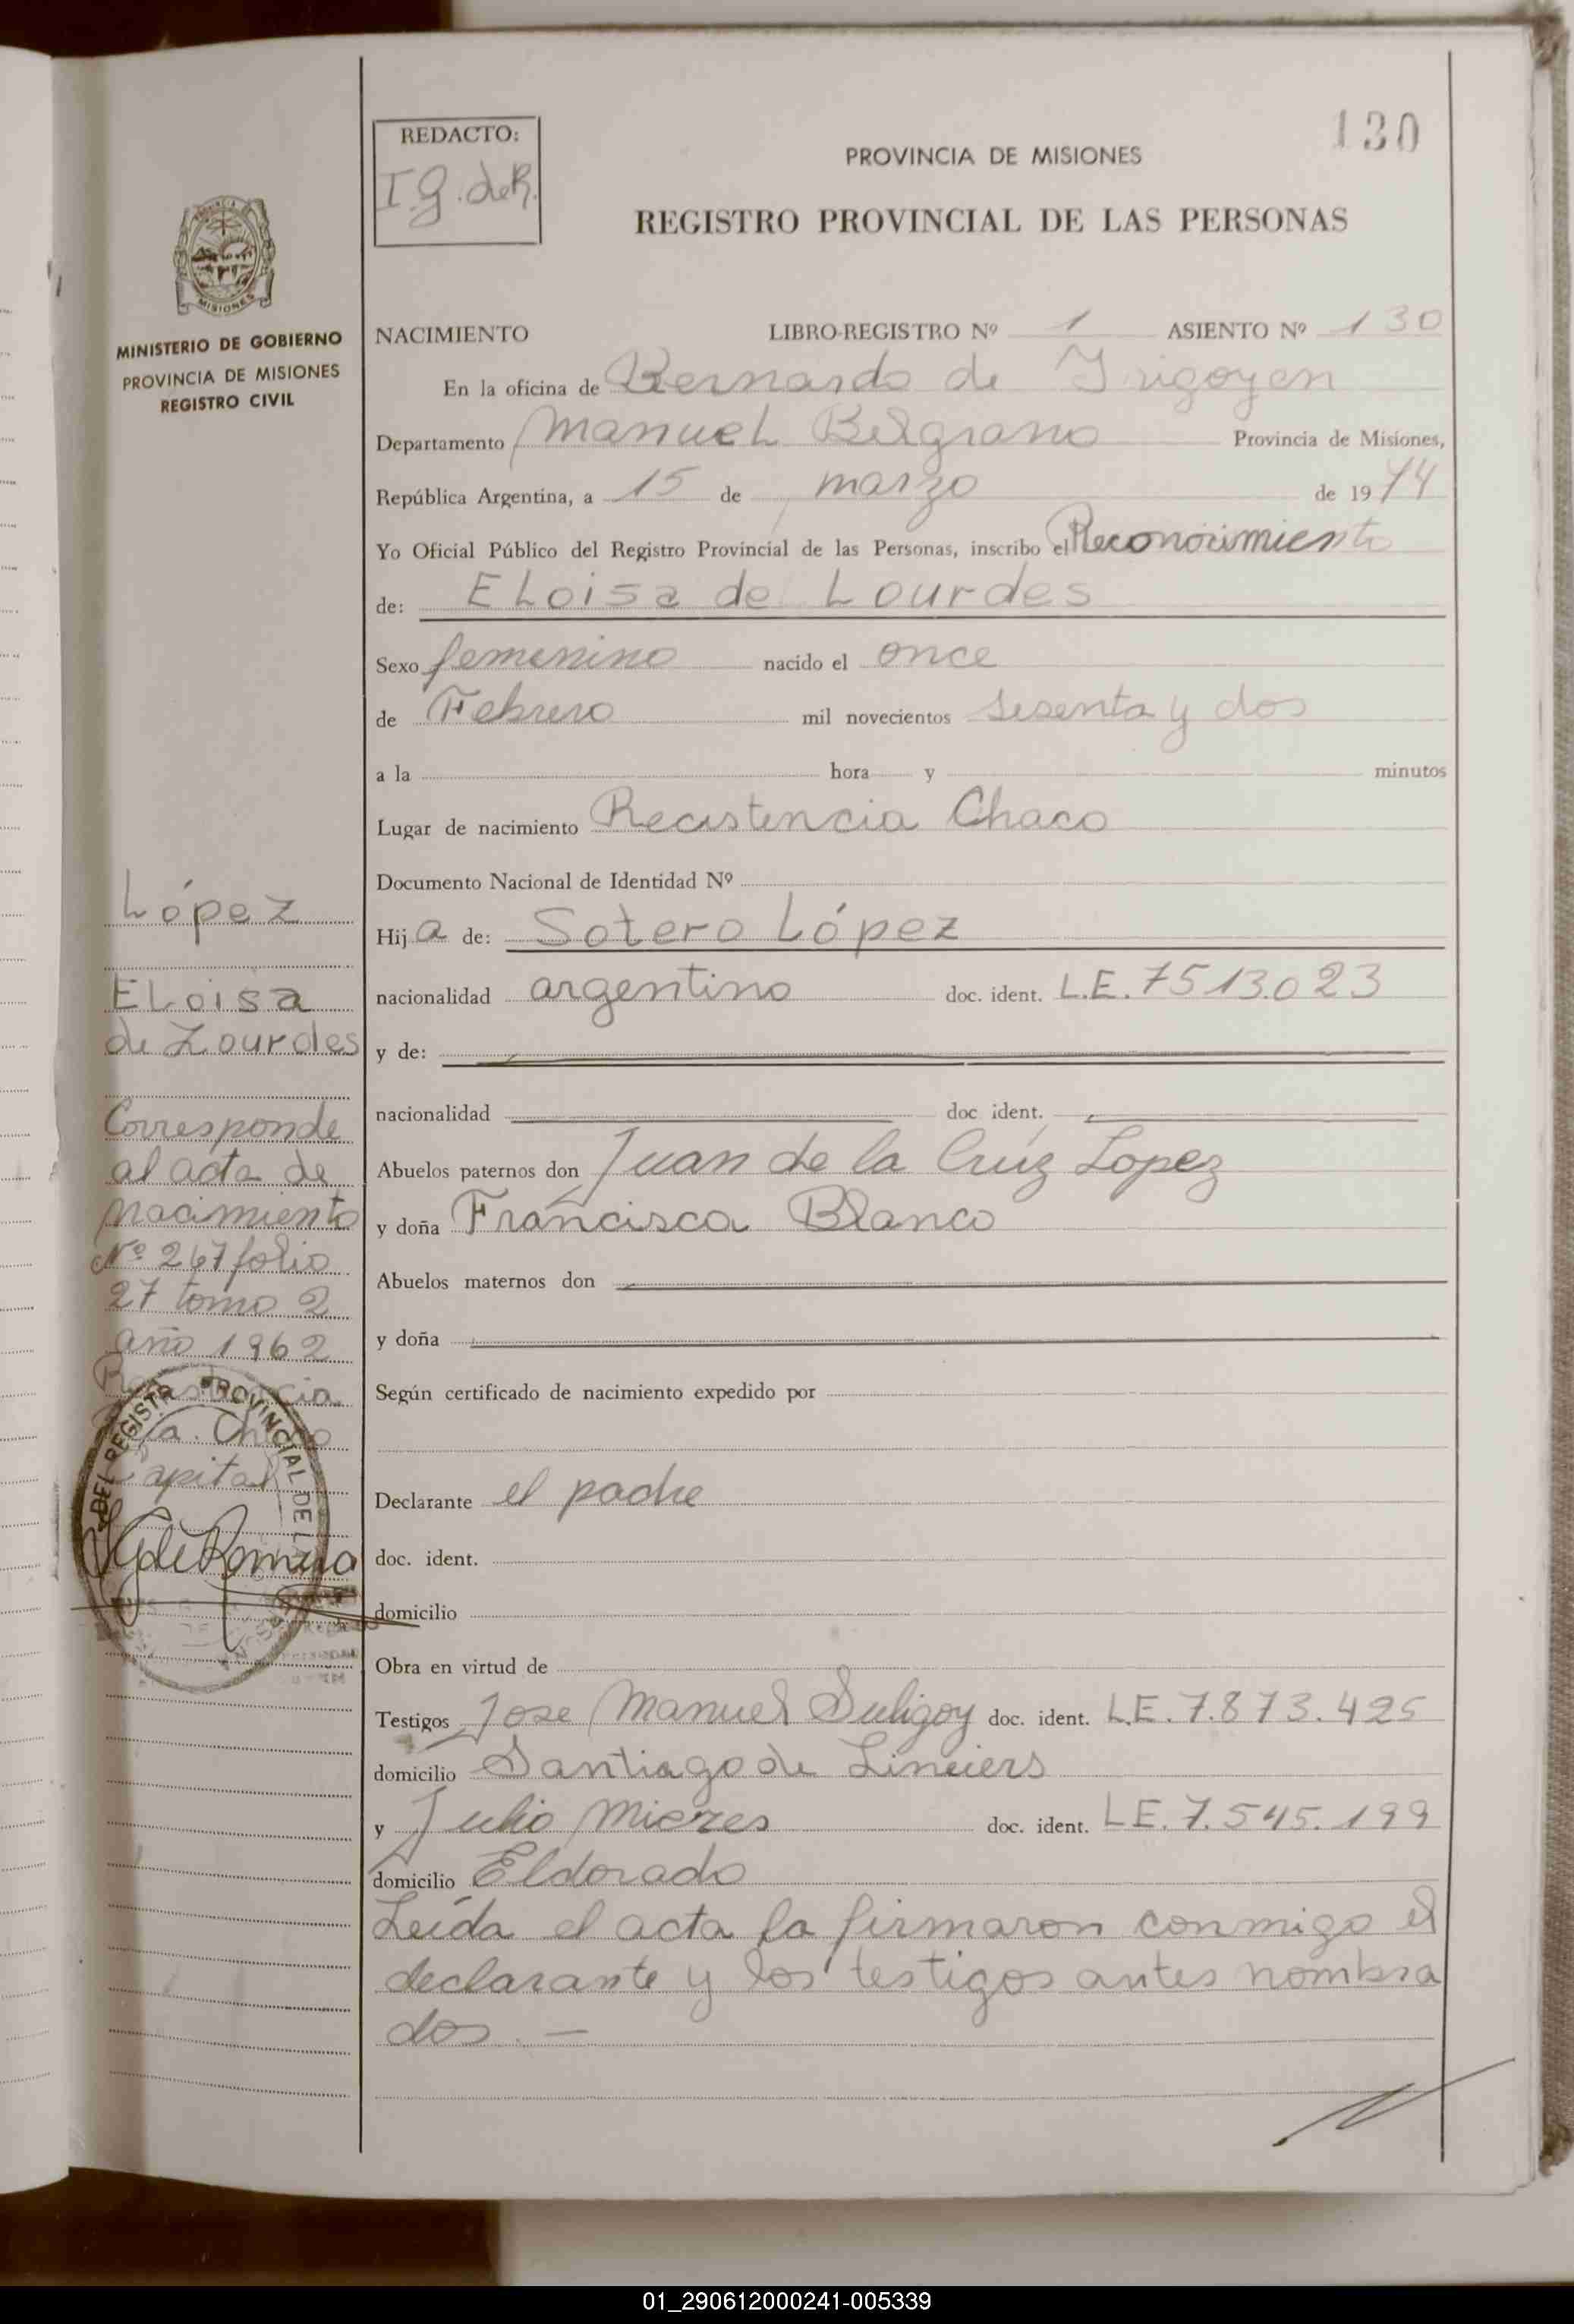 130
REDACTO:
I.g.deR.
PROVINCIA DE MISIONES
REGISTRO PROVINCIAL DE LAS PERSONAS
MISIONES
MINISTERIO DE GOBIERNO
PROVINCIA DE MISIONES
REGISTRO CIVIL
NACIMIENTO LIBRO-REGISTRO Nº 1 ASIENTO Nº 130
En la oficina de Bernardo de Irigoyen
Departamento Manuel Belgrano Provincia de Misiones,
República Argentina, a 15 de marzo de 1974
Yo Oficial Público del Registro Provincial de las Personas, inscribo el Reconocimiento
de: ELoisa de Lourdes
Sexo femenino nacido el once
de Febrero mil novecientos sesenta y dos
a la hora y minutos
Lugar de nacimiento Recistencia Chaco
Documento Nacional de Identidad Nº
Hija de: Sotero López
nacionalidad argentino doc. ident. L.E. 7513.023
y de:
nacionalidad doc ident.
Abuelos paternos don Juan de la Crúz Lopez
y doña Francisca Blanco
Abuelos maternos don
y doña
Según certificado de nacimiento expedido por
Declarante el padre
doc. ident.
domicilio
Obra en virtud de
Testigos Jose Manuel Suligoy doc. ident. L.E. 7.873.425
domicilio Santiago de Liniers
y Julio Mieres doc. ident. LE. 7.545.199
domicilio Eldorado
Leída el acta la firmaron conmigo el
declarante y los testigos antes nombra
dos. —
López
ELoisa
de Lourdes
Corresponde
al acta de
nacimiento
Nº 267 folio
27 tomo 2
año 1962
Recistencia
Chaco
Capital
DEL REGISTR PROVINCIAL DE L
01_290612000241-005339